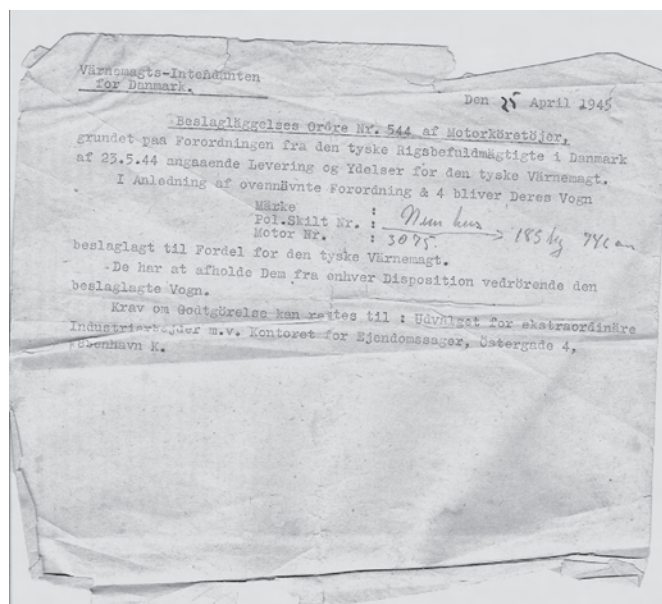 Värnemagts-Intendanten
for Danmark.
Den 25 April 1945
Beslaglâggelses Ordre Nr. 544 af Motorköretöjer,
grundet paa Forordningen fra den tyske Rigsbefuldmägtigte i Danmark
af 23.5.44 angaaende Levering og Ydelser for den tyske Värnemagt.
I Anledning af ovennävnte Forordning & 4 bliver Deres Vogn
Märke :
Pol.Skilt Nr. :
Motor Nr. : 3075 185 kg
beslaglagt til Fordel for den tyske Värnemagt.
De har at afholde Dem fra enhver Disposition vedrörende den
beslaglagte Vogn.
Krav om Godtgörelse kan rettes til : Udvalget for ekstraordinäre
Industriarbejder m.v. Kontoret for Ejendomssager, Östergade 4,
København K.